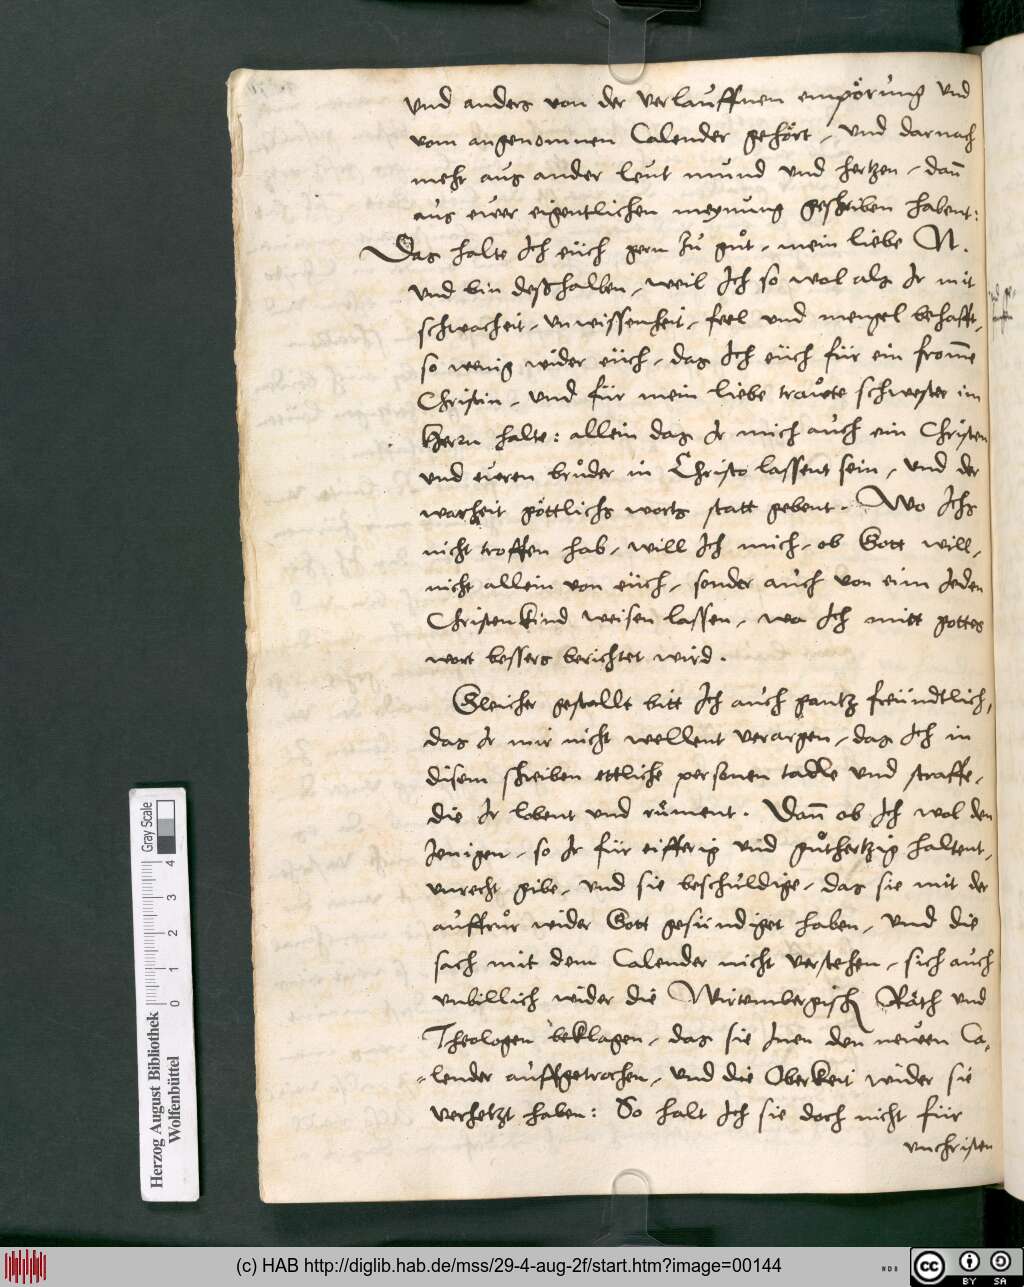 Vnd anders von der verlauffnen empörung vnd
vom angenomnen Calender gehört, vnd darnach
mehr aus ander leut mund vnd hertzen, dañ
aus ewer eigentlichen meynung geschriben habent:
Das halte Ich eüch gern zů gůt, mein liebe N.
vnd bin deßhalben, weil Ich so wol als Ir mit
schwacheit, vnwissenheit, feel vnd mengel behafft,
so wenig wider eüch, das Ich eüch für ein from̃e
Christin, vnd für mein liebe trawte schwester im
Herrn halte: allein das Ir mich auch ein Christen
vnd eweren brůder in Christo lassent sein, vnd der
warheit göttlichs worts statt gebent. Wo Ichs
nicht troffen hab, will Ich mich, ob Gott will,
nicht allein von eüch, sonder auch von eim Jeden
Christenkind weisen lassen, wa Ich mitt gottes
wort bessers berichtet wird.
Gleicher gestallt bitt Ich auch gantz freündtlich,
das Ir mir nicht wellent verargen, das Ich in
disem schreiben ettliche personen tadle vnd straffe,
die Ir lobent vnd rüment. Dañ ob Ich wol den
Jenigen, so Ir für eifferig vnd gůthertzig haltent,
vnrecht gibe, vnd sie beschuldige, das sie mit der
auffrůr wider Gott gesündiget haben, vnd die
sach mit dem Calender nicht verstehen, sich auch
vnbillich wider die Wirtembergisch Räth vnd
Theologen beklagen, das sie Inen den newen Ca-
lender auffgetrochen, vnd die Oberkeit wider sie
verhetzt haben: So halt Ich sie doch nicht für
vnchristen
Gray Scale
4
3
2
1
0
Herzog August Bibliothek
Wolfenbüttel
(c) HAB http://diglib.hab.de/mss/29-4-aug-2f/start.htm?image=00144
cc BY SA